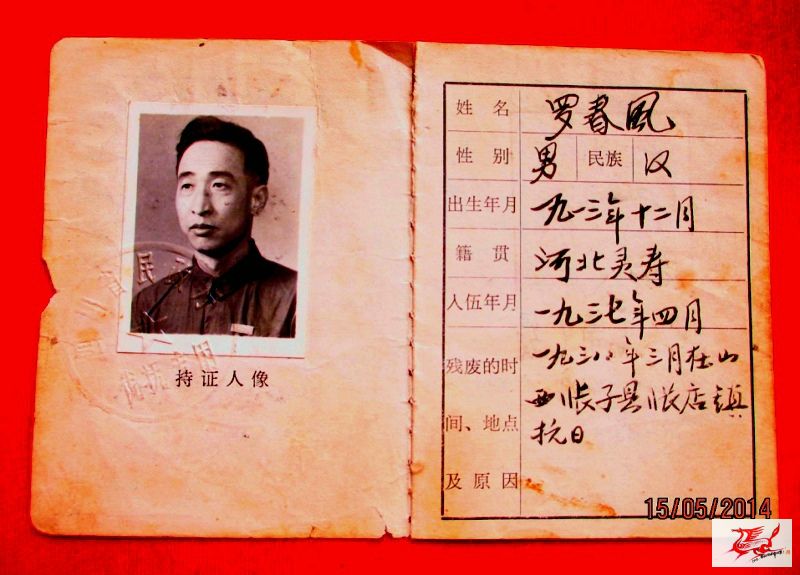 持证人像
姓名 罗春風
性别 男 民族 汉
出生年月 一九一三年十二月
籍贯 河北灵寿
入伍年月 一九三七年四月
残废的时 一九三八年三月在山
西长子县张店鎮
间、地点
抗日
及原因
15/05/2014